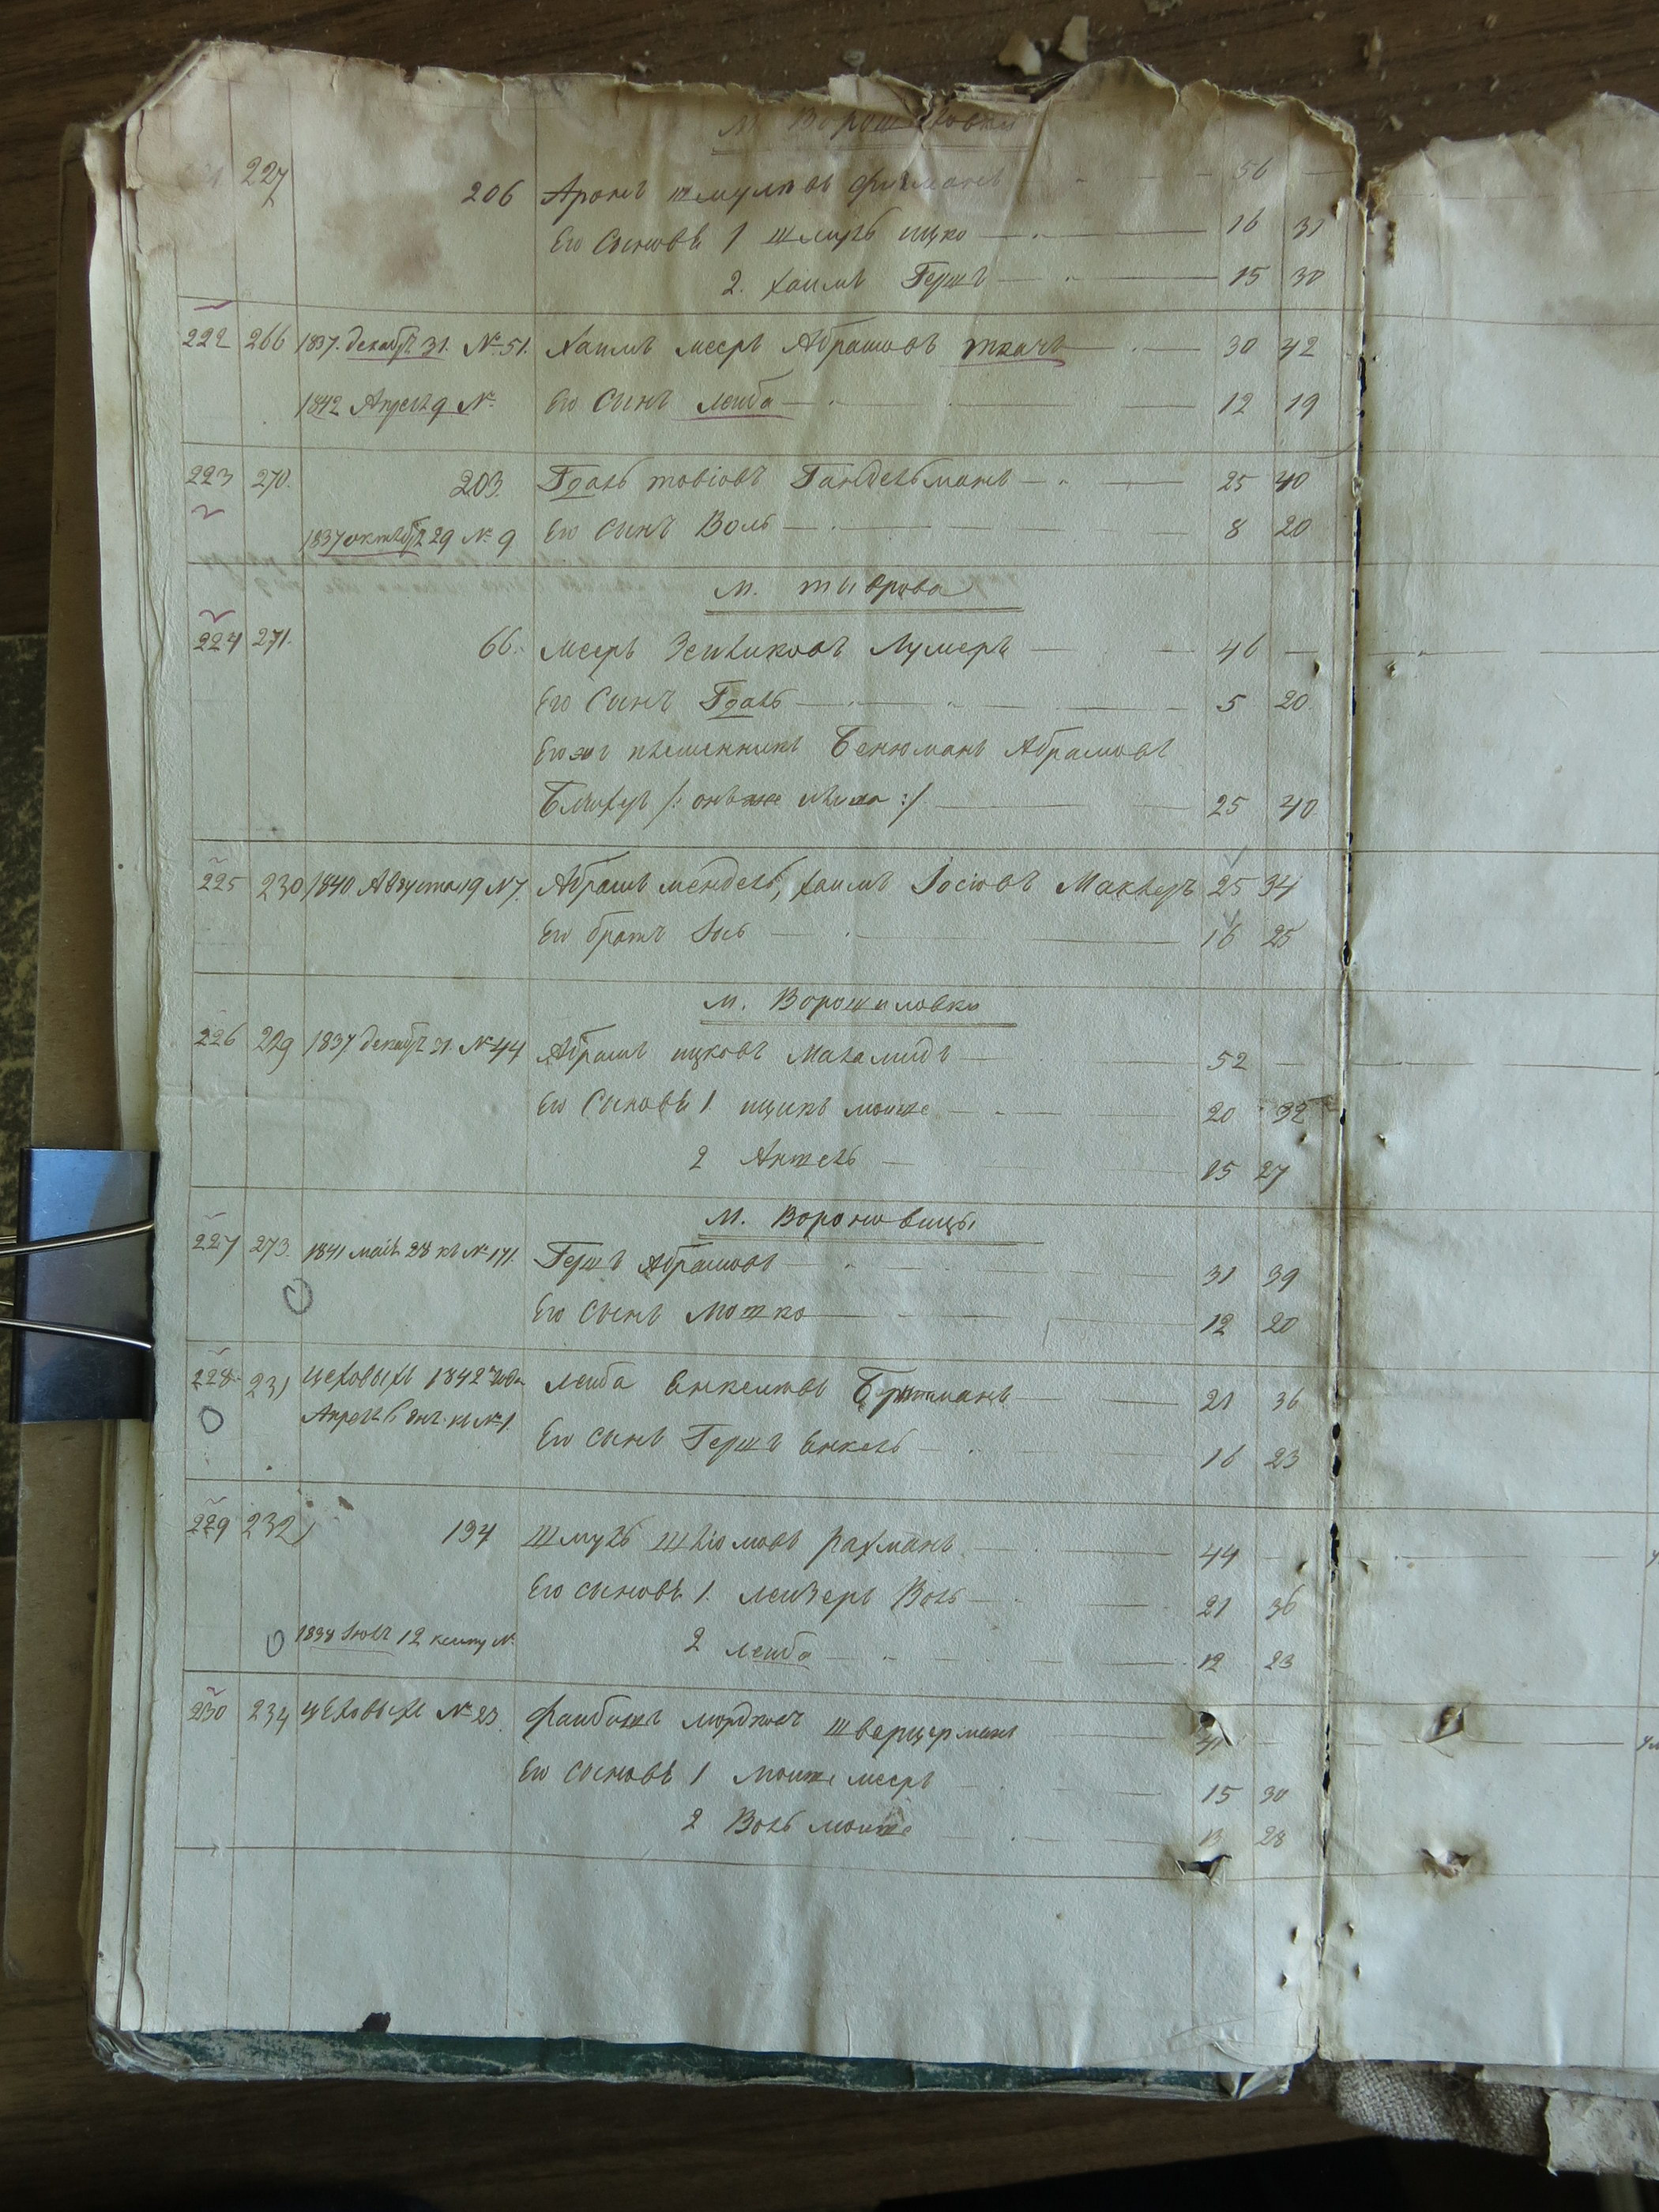 М. Ворошиловки
227 206 Аронъ Шмулювъ Фи##манъ 56 —
Его Сыновья 1 Шмуль Ицко 16 31
2. Хаимъ Гершъ 15 30
222 266 1837. декабря 31. № 51. Хаимъ Мееръ Абрамовъ Ткачъ 30 42
1842 Апреля 9 №. Его Сынъ Лейба 12 19
223 270. 203. Гдаль Товіовъ Гандельманъ 25 40
1837 октября 29 № 9 Его Сынъ Воль 8 20
М. Тыврова
224 271. 66. Мееръ Зейликовъ Лумеръ 46 —
Его Сынъ Гдаль 5 20
Его же племенникъ Бенюманъ Абрамовъ
/: онъ же :/ 25 40
225 230 1840 Августа 19 № 7. Абрамъ Мендель, Хаимъ Іосіовъ Маклеръ 25 34
Его братъ Іось 16 25
М. Ворошиловки
226 229 1837 декабря 31. № 44 Абрамъ Ицковъ Маламидъ 52 —
Его Сыновья 1 Ицикъ Мошке 20 32
2 Аншель 15 27
М. Вороновицы
227 273. 1841 маія 28 къ № 171. Гершъ Абрамовъ 31 39
Его Сынъ Мошко 12 20
228 231 Цеховыхъ 1842 года Лейба Енкелювъ 21 36
Апреля 6 къ № 1. Его Сынъ Гершъ Енкель 16 23
229 232 194 Шмуль Шліомовъ Рахманъ 44 —
Его сыновья 1. Лейзеръ Воль 21 36
1838 Іюля 12 № 2 Лейба 12 23
230 234 Цеховыхъ № 23. Файбишъ Мордковъ Шверцерманъ 41 —
Его Сыновья 1 Мошке Мееръ 15 30
2 Воль Мошке 13 28